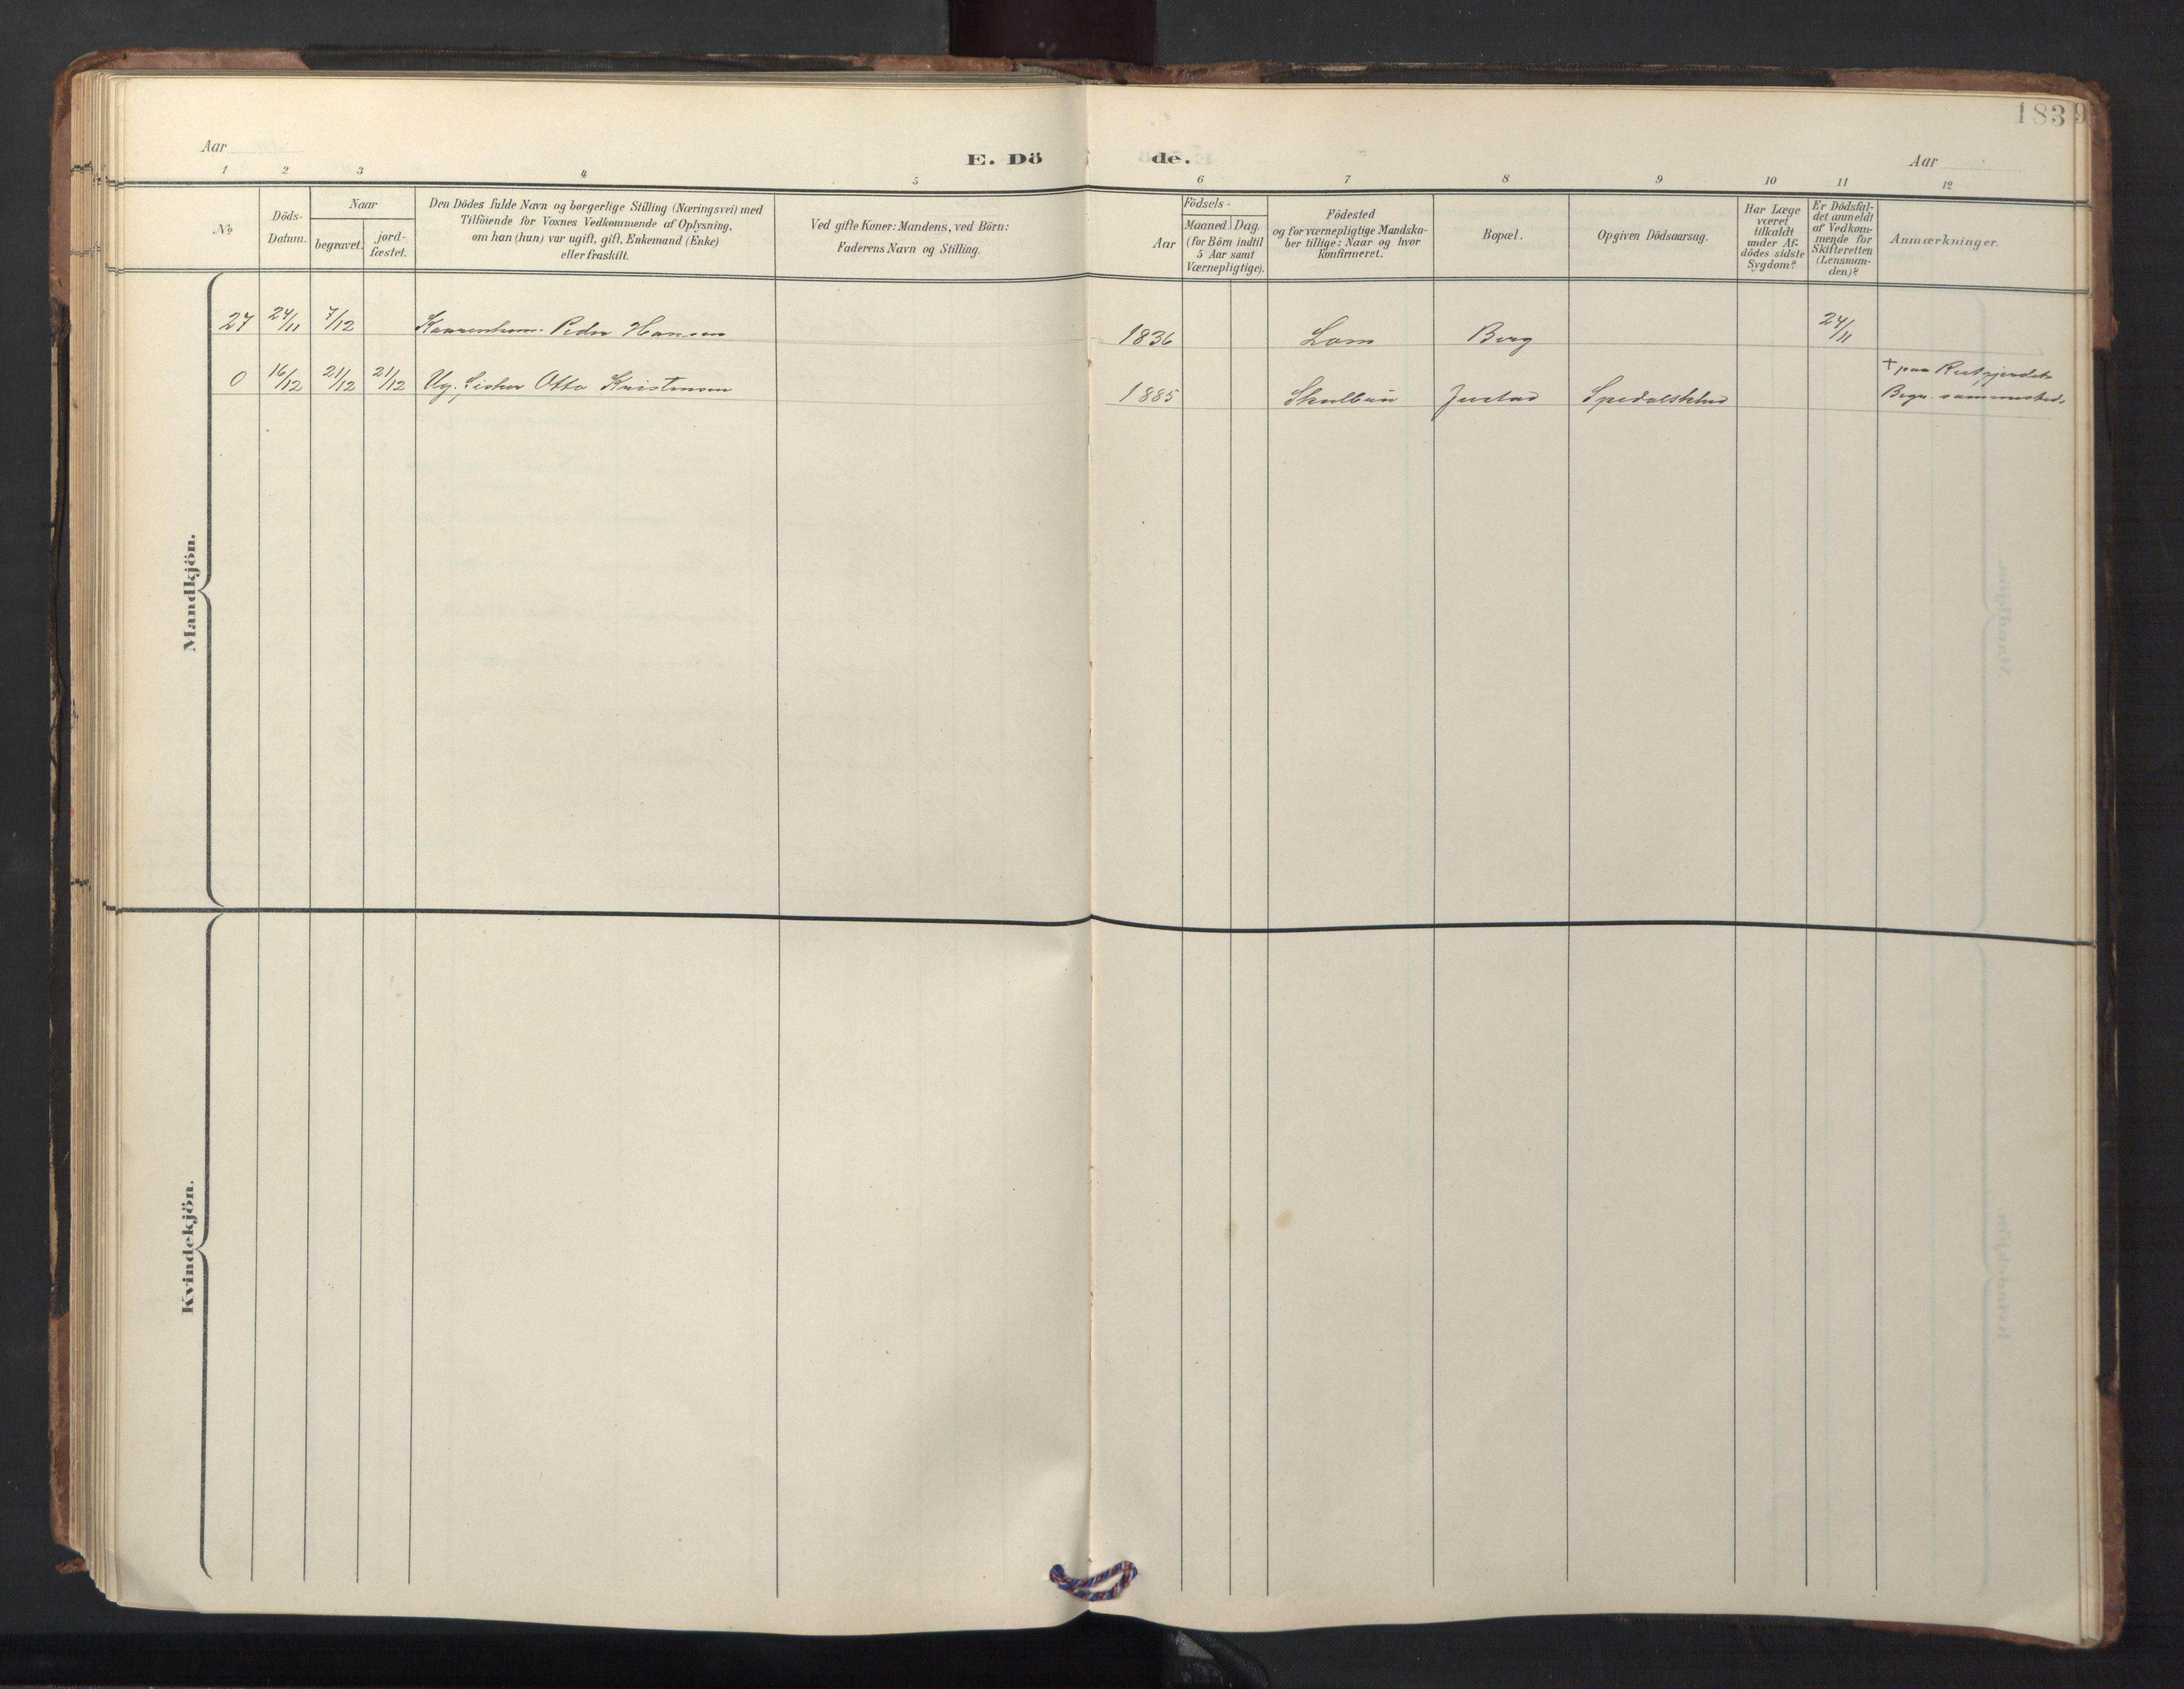 183
9
Aar
E. Dö
de.
Aar
1 2 3 4 5 6 7 8 9 10 11 12
No
Döds-
Datum.
Naar
begravet.
jord-
fæstet.
Den Dödes fulde Navn og borgerlige Stilling (Næringsvei) med
Tilföiende for Voxnes Vedkommende af Oplysning,
om han (hun) var ugift, gift, Enkemand (Enke)
eller fraskilt.
Ved gifte Koner: Mandens, ved Börn:
Faderens Navn og Stilling.
Födsels-
Aar
Maaned. Dag.
(for Börn indtil
5 Aar samt
Værnepligtige).
Födested
og for værnepligtige Mandska-
ber tillige: Naar og hvor
konfirmeret.
Bopæl.
Opgiven Dödsaarsag.
Har Læge
været
tilkaldt
under Af-
dödes sidste
Sygdom?
Er Dödsfal-
det anmeldt
af Vedkom-
mende for
Skifteretten
(Lensman-
den)?
Anmærkninger.
Mandkjön.
27 24/11 7/12 Peder Hansen 1836 Lom Berg 24/11
0 16/12 21/12 21/12 Ug. Fisker Otto Kristensen 1885 Justad Spedalskhed
† paa Reitgjerdet.
Begr. sammesteds
Kvindekjön.